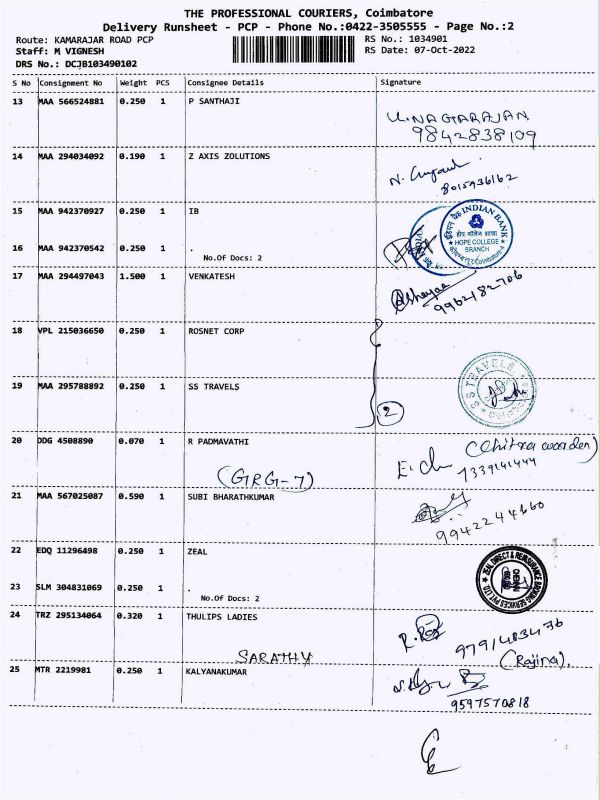 THE PROFESSIONAL COURIERS, Coimbatore
Delivery Runsheet - PCP - Phone No.:0422-3505555 - Page No.:2
Route: KAMARAJAR ROAD PCP
RS No.: 1034901
Staff: M VIGNESH
RS Date: 07-Oct-2022
DRS No.: DCJB103490102
S No Consignment No Weight PCS Consignee Details Signature
13 MAA 566524881 0.250 1 P SANTHAJI
U.NAGARAJAN
9842838109
14 MAA 294034092 0.190 1 Z AXIS ZOLUTIONS
8015936162
15 MAA 942370927 0.250 1 IB
INDIAN BANK
HOPE COLLEGE
BRANCH
16 MAA 942370542 0.250 1 .
No.Of Docs: 2
17 MAA 294497043 1.500 1 VENKATESH
9962182706
18 VPL 215036650 0.250 1 ROSNET CORP
19 MAA 295788892 0.250 1 SS TRAVELS
S S TRAVELS
2
20 DDG 4508890 0.070 1 R PADMAVATHI
(Chitra warden)
7339141444
(GRG-7)
21 MAA 567025087 0.590 1 SUBI BHARATHKUMAR
9942244660
22 EDQ 11296498 0.250 1 ZEAL
23 SLM 304831069 0.250 1 .
No.Of Docs: 2
24 TRZ 295134064 0.320 1 THULIPS LADIES
9791483476
(Rajina).
SARATHY
25 MTR 2219981 0.250 1 KALYANAKUMAR
9597570818